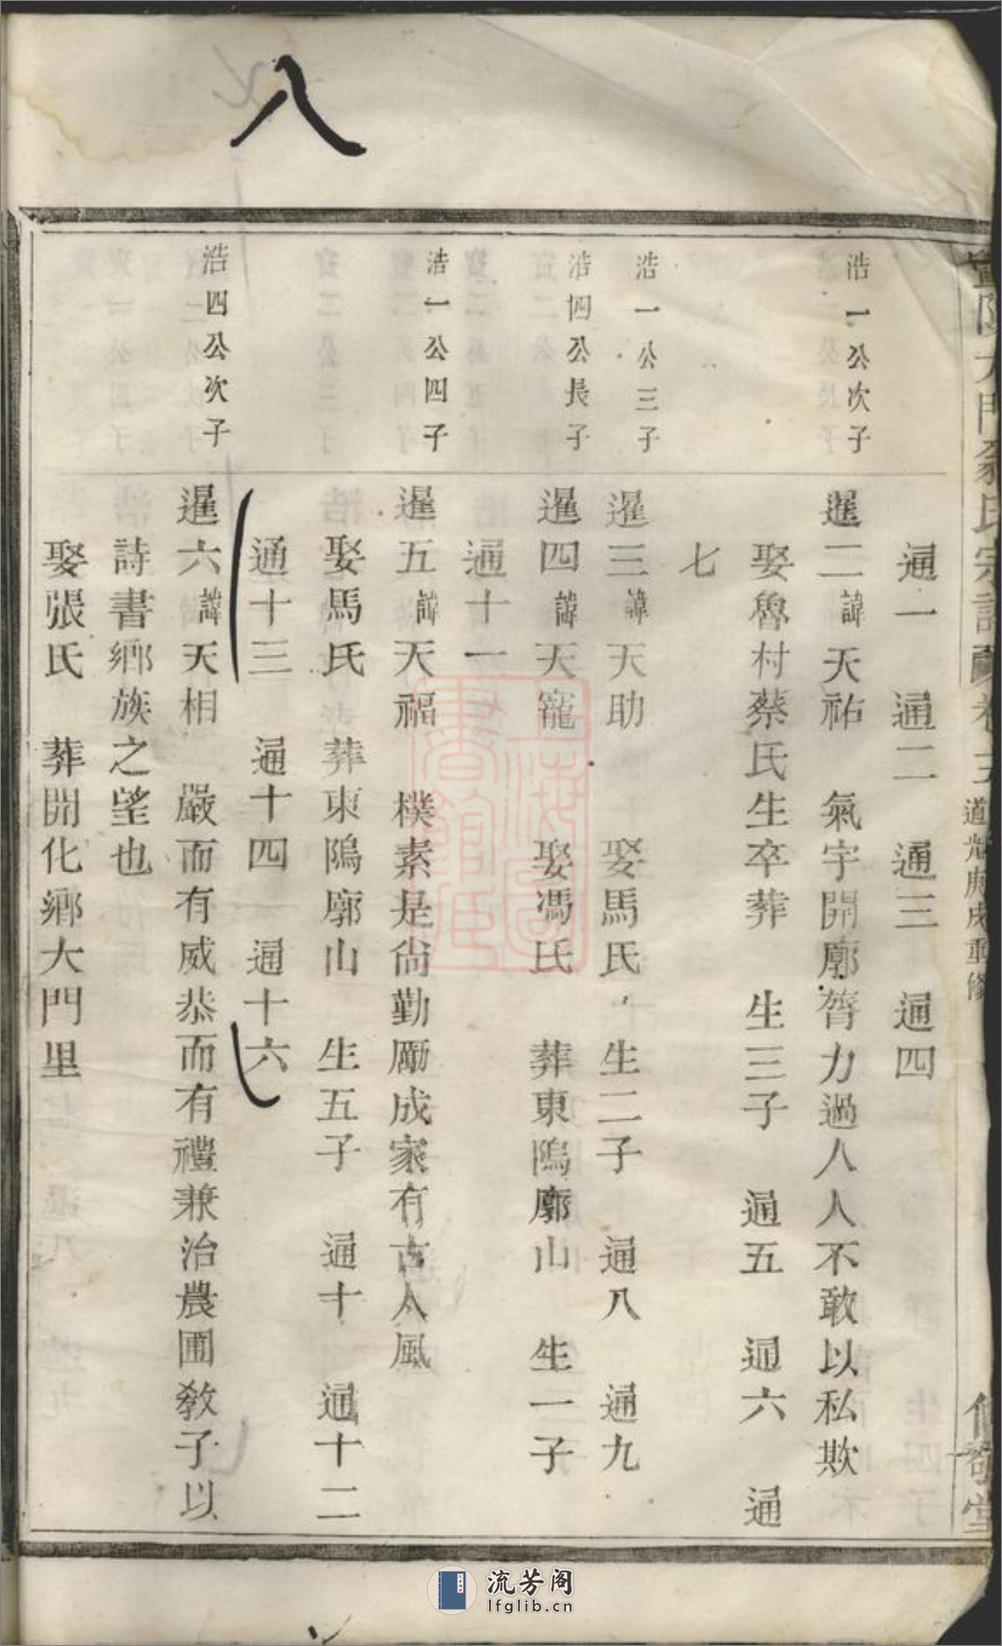 八
通一 通二 通三 通四
浩一公次子
暹二諱天祐 氣宇開廓膂力過人人不敢以私欺
娶魯村蔡氏生卒葬 生三子 通五 通六 通
七
浩一公三子
暹三諱天助 娶馬氏 生二子 通八 通九
浩四公長子
暹四諱天寵 娶馮氏 葬東隖廓山 生一子
通十一
浩一公四子
暹五諱天福 樸素是尙勤勵成家有古人風
娶馬氏 葬東隖廓山 生五子 通十 通十二
通十三 通十四 通十六
浩四公次子
暹六諱天相 嚴而有威恭而有禮兼治農圃敎子以
詩書鄉族之望也
娶張氏 葬開化鄉大門里
道光庚戌重修
上海圖書館藏
流芳阁
lfglib.cn